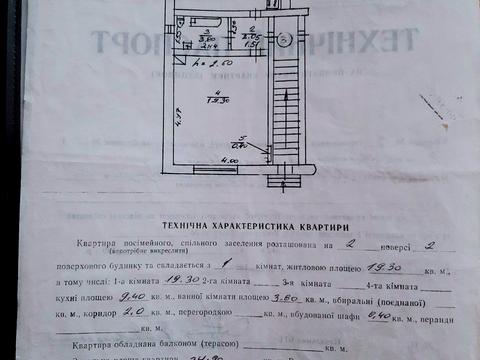 3
3.60
2.44
2
2.05
1.51
3
h = 2.60
4
19.30
4.47
5
0.40
4.00
ТЕХНІЧНА ХАРАКТЕРИСТИКА КВАРТИРИ
Квартира посімейного, спільного заселення розташована на 2 поверсі 2
(непотрібне викреслити)
поверхового будинку та складається з 1 кімнат, житловою площею 19.30 кв. м.,
а тому числі: 1-а кімната 19.30 2-га кімната 3-я кімната 4-та кімната
кухні площею 9,40 кв. м., ванної кімнати площею 3.60 кв. м., вбиральні (поєднаної)
кв. м., коридор 2.0 кв. м., перегородкою кв. м., вбудованої шафи 0,40 кв. м., веранди
кв. м.
Квартира обладнана балконом (терасою) кв. м.